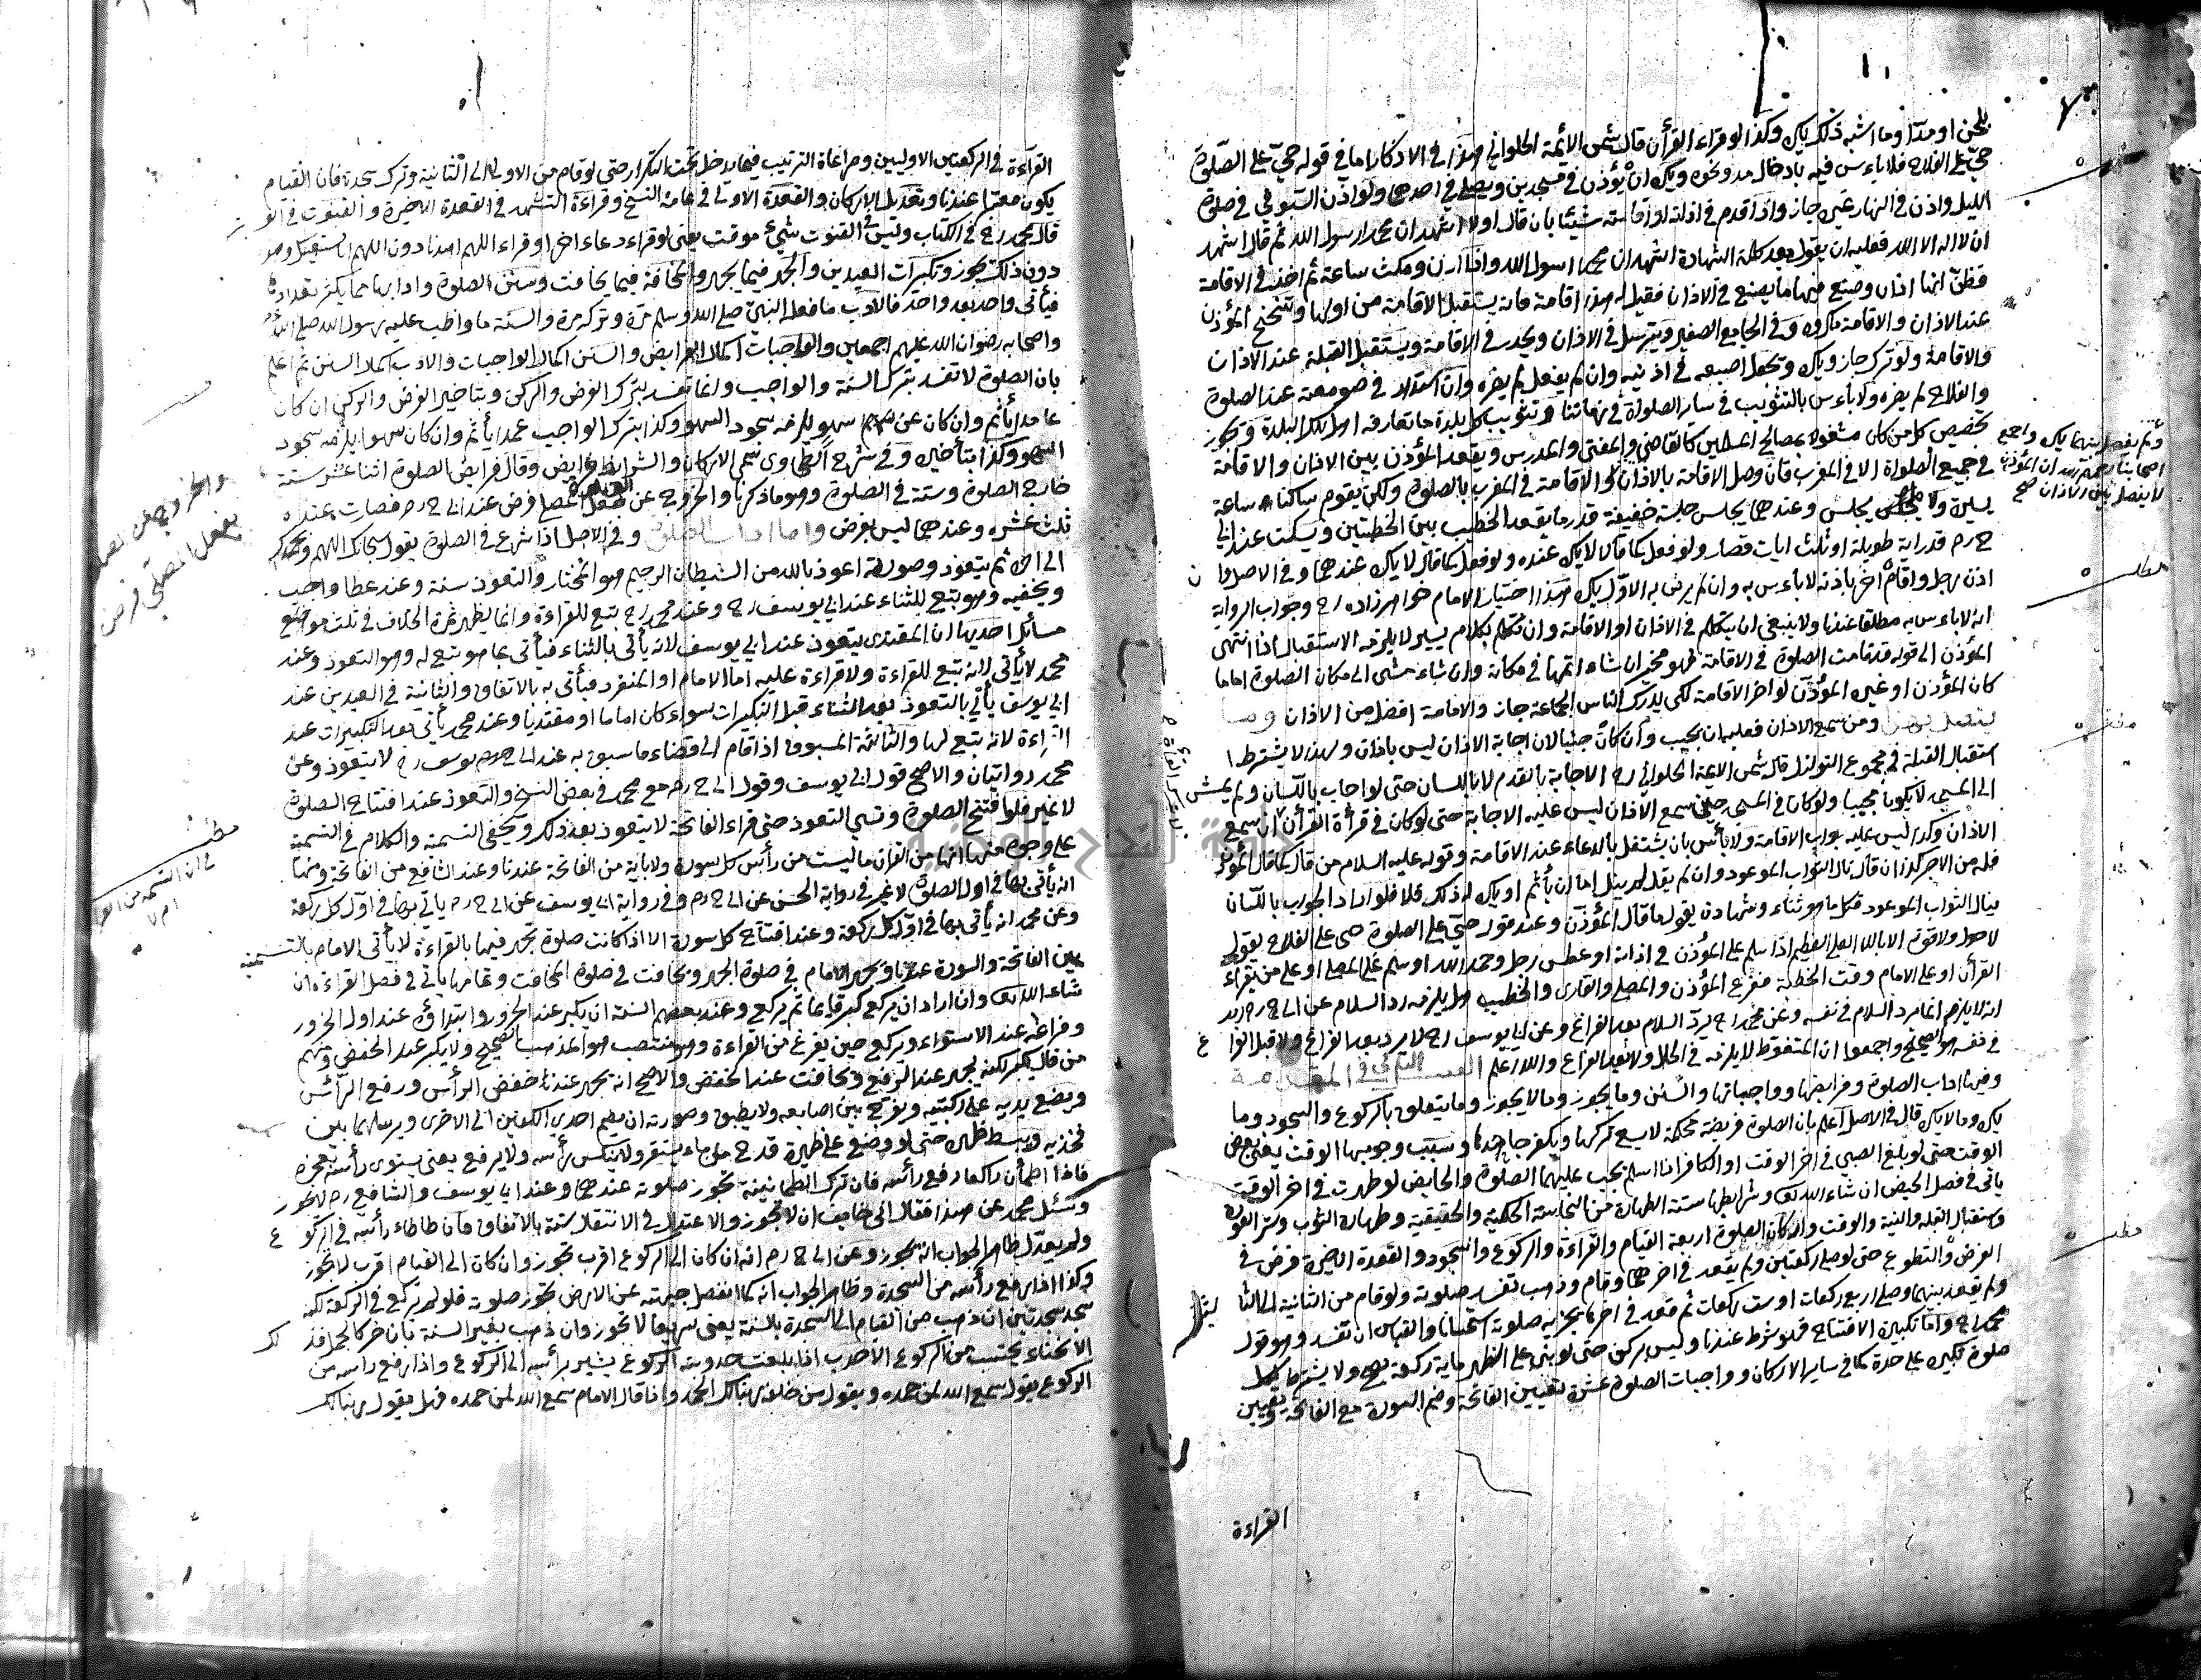 بلحن او مدّ او ما اشبه ذلك يكره وكذا لو قراء القرأن قال شمس الائمة الحلواني هذا في الاذكار اما في قوله حيّ على الصّلوة
حيّ على الفلاح فلاباءس فيه بادخال مد ونحوه ويكره ان يؤذن في مسجدين ويصلي في احدهما ولو اذن السوقي في صلوة
الليل واذن في النهار غيره جاز واذا قدم في اذانه او اقامته شيئا بان قال اولا اشهد ان محمدا رسول الله ثم قال اشهد
ان لا اله الا الله فعليه ان يقول بعد كلمة الشهادة اشهد ان محمدا رسول الله واذا اذن ومكث ساعة ثم اخذ في الاقامة
فظنّ انها اذان وصنع فيها ما يصنع في الاذان فقيل له هذا اقامة فانه يستقبل الاقامة من اولها وتنحنح المؤذن
عند الاذان والاقامة مكروه وفي الجامع الصغير ويترسل في الاذان ويحدر في الاقامة ويستقبل القبلة عند الاذان
والاقامة ولو ترك جاز ويكره وتجعل اصبعه في اذنيه وان لم يفعل لم يضره وان استدار في صومعته عند الصلوة
والفلاح لم يضره ولاباءس بالتثويب في ساير الصلوة في زماننا وتثويب كل بلدة ما تعارفه اهل تلك البلدة وتجوز
تخصيص كل من كان مشغولا بمصالح المسلمين كالقاضي والمفتي والمدرس ويقعد المؤذن بين الاذان والاقامة
في جميع الصلواة الا في المغرب فان وصل الاقامة بالاذان والاقامة في المغرب بالصلوة ولكن يقوم ساكتا ساعة
يسيرة ولا يجلس وعندهما يجلس جلسة خفيفة قدر ما يقعد الخطيب بين الخطبتين ويسكت عند ابي
ح رح قدر اية طويلة او ثلث ايات قصار ولو فعل كما قالا لا يكره عنده ولو فعل كما قال لا يكره عندهما وفي الاصل وان
اذن رجل واقام اخر باذنه لاباءس به وان لم يرض به الاول يكره هذا اختيار الامام خواهرزاده رح وجواب الرواية
انه لاباءس به مطلقا عندنا ولا ينبغي ان يتكلم في الاذان او الاقامة وان تكلم بكلام يسير لا يلزمه الاستقبال اذا انتهى
المؤذن الى قوله قد قامت الصلوة في الاقامة فهو مخير ان شاء اتمها في مكانه وان شاء مشى الى مكان الصلوة اماما
كان المؤذن او غيره المؤذن لو اخر الاقامة لكي يدرك الناس الجماعة جاز والاقامة افضل من الاذان
ومن سمع الاذان فعليه ان يجيب وان كان جنبا لان اجابة الاذان ليس باذان ولهذا لا يشترط
استقبال القبلة في مجموع النوازل قال شمس الائمة الحلواني رح الاجابة بالقدم لا باللسان حتى لو اجاب باللسان ولم يمش
الى المسجد لا يكون مجيبا ولو كان في المسجد حين سمع الاذان ليس عليه الاجابة حتى لو كان في قرأة القرأن ان سمع
الاذان وكذا ليس عليه جواب الاقامة ولا بأس بان يشتغل بالدعاء عند الاقامة وقوله عليه السلام من قال كما قال المؤذن
فله من الاجر كذا ان قال نال الثواب الموعود وان لم يقل لم ينل اما ان يأثم او يكره له ذلك فلا فلو اراد الجواب باللسان
ينال الثواب الموعود فكل ما هو ثناء وشهادة يقول ما قال المؤذن وعند قوله حيّ على الصلوة حي على الفلاح يقول
لا حول ولا قوة الا بالله العلي العظيم اذا سلم على المؤذن في اذانه او عطس رجل وحمد الله او سلم على المصلي او على من يقراء
القرأن او على الامام وقت الخطبة ففرغ المؤذن والمصلي والقارى والخطيب هل يلزمه رد السلام عن ابي ح رح
انه لا يلزم انما يرد السلام في نفسه وعن محمد رح يردّ السلام بعد الفراغ وعن ابي يوسف رح لا يرد بعد الفراغ ولا قبل الفراغ
في نفسه هو الصحيح واجمعوا ان المتغوط لا يلزمه في الحال ولا بعد الفراغ والله اعلم الفصل الثاني في المقدمة
وفيها اداب الصلوة وفرايضها وواجباتها والسنن وما يجوز وما لا يجوز وما يتعلق بالركوع والسجود وما
يكره وما لا يكره قال في الاصل اعلم بان الصلوة فريضة محكمة لا يسع تركها ويكفر جاحدها وسبب وجوبها الوقت
الوقت حتى لو بلغ الصبي في اخر الوقت او الكافر اذا اسلم يجب عليهما الصلوة والحايض لو طهرت في اخر الوقت
ياتي في فصل الحيض ان شاء الله تع وشرايطها ستة الطهارة من النجاسة الحكمية والحقيقية وطهارة الثوب وستر العورة
واستقبال القبلة والنية والوقت واركان الصلوة اربعة القيام والقراءة والركوع والسجود والقعدة الاخيرة فرض في
الفرض والتطوع حتى لو صلى ركعتين ولم يقعد في اخرهما وقام وذهب تفسد صلوته ولو قام من الثانية الى الثالثة
ولم يقعد بينهما وصلى اربع ركعات او ست ركعات ثم قعد في اخرها يجزيه صلوته استحسانا والقياس ان تفسد وهو قول
محمد رح واما تكبيرة الافتتاح فهو شرط عندنا وليس بركن حتى لو بنى على الظهر ماية ركعة يصح ولا يشترط لكل
صلوة تكبيرة على حدة كما في ساير الاركان وواجبات الصلوة عشرة تعيين الفاتحة وضم السورة مع الفاتحة وتعيين
القراءة
ولم يفصل بينهما يكره واجمع
اصحابنا رحمهم الله ان المؤذن
مطلب
مطلب
القراءة في الركعتين الاوليين ومراعاة الترتيب فيما يدخل تحت التكرار حتى لو قام من الاولى الى الثانية وترك سجدة فان القيام
يكون معتبرا عندنا وتعديل الاركان والقعدة الاولى في عامة النسخ وقراءة التشهد في القعدة الاخيرة والقنوت في الوتر
قال محمد رح في الكتاب وليس في القنوت شيئ موقت يعني لو قراء دعاء اخر او قراء اللهم اهدنا دون اللهم انا نستعينك
دون ذلك يجوز وتكبيرات العيدين والجهر فيما يجهر والمخافتة فيما يخافت وسنن الصلوة وادابها مما يكثر تعدادها
فيأتي واحد بعد واحد فالادب ما فعله النبيّ صلى الله وسلم مرة وتركه مرة والسنة ما واظب عليه رسول الله صلى الله
واصحابه رضوان الله عليهم اجمعين والواجبات اكمال الفرايض والسنن اكمال الواجبات والادب اكمال السنن ثم اعلم
بان الصلوة لا تفسد بترك السنة والواجب وانما تفسد بترك الفرض والركن وبتاخير الفرض والركن ان كان
عامدا يأثم وان كان عن سهو يلزمه سجود السهو وكذا بترك الواجب عمدا يأثم وان كان سهوا يلزمه سجود
السهو وكذا بتأخيره وفي شرح الطحاوى سمى الاركان والشرايط فرايض وقال فرايض الصلوة اثنا عشر ستة
خارج الصلوة وستة في الصلوة وهو ما ذكرنا والخروج عن الصلوة بفعل المصلي فرض عند ابي ح رح فصارت عنده
ثلث عشره وعندهما ليس بفرض وفي الاصل اذا شرع في الصلوة يقول سبحانك اللهم وبحمدك
الى اخره ثم يتعوذ وصورته اعوذ بالله من الشيطان الرجيم هو المختار والتعوذ سنة وعند عطا واجب
ويخفيه وهو تبع للثناء عند ابي يوسف رح وعند محمد رح تبع للقراءة وانما يظهر ثمرة الخلاف في ثلث مواضع
مسائل احديها ان المقتدى يتعوذ عند ابي يوسف لانه يأتي بالثناء فيأتي بما هو تبع له وهو التعوذ وعند
محمد لا يأتي لانه تبع للقراءة ولا قراءة عليه اما الامام او المنفرد فيأتي به بالاتفاق والثانية في العيدين عند
ابي يوسف يأتي بالتعوذ بعد الثناء قبل التكبيرات سواء كان اماما او مقتديا وعند محمد يأتي بعد التكبيرات عند
القراءة لانه تبع لها والثالثة المسبوق اذا قام الى قضاء ما سبق به عند ابي ح وابي يوسف رح لا يتعوذ وعن
محمد روايتان والاصح قول ابي يوسف وقول ابي ح رح مع محمد في بعض النسخ والتعوذ عند افتتاح الصلوة
لا غير فلو افتتح الصلوة ونسي التعوذ حتى قراء الفاتحة لا يتعوذ بعد ذلك ويخفى التسمية والكلام في التسمية
على وجوه منها انها من القران ما ليست من رأس كل سورة ولا باية من الفاتحة عندنا وعند الشافعي من الفاتحة ومنها
انه يأتي بها في اول الصلوة لا غير في رواية الحسن عن ابي ح رح وفي رواية ابي يوسف عن ابي ح رح ياتي بها في اول كل ركعة
وعن محمد انه يأتي بها في اول كل ركعة وعند افتتاح كل سورة الا اذا كانت صلوة تجهر فيها بالقراءة لا يأتي الامام بالتسمية
بين الفاتحة والسورة عندنا ويجهر الامام في صلوة الجهر ويخافت في صلوة المخافت وتمامها ياتي في فصل القراءة ان
شاء الله تع وان اراد ان يركع كبر قايما ثم يركع وعند بعضهم السنة ان يكبر عند الخرور وابتداؤه عند اول الخرور
وفراغه عند الاستواء ويركع حين يفرغ من القراءة وهو منتصب هو المذهب الصحيح ولا يكبر عند الخفض ومنهم
من قال يكبر لكنه يجهر عند الرفع ويخافت عند الخفض والاصح انه يجهر عندنا خفض الرأس ورفع الرأس
ويضع يديه على ركبتيه ويفرج بين اصابعه ولا يطبق وصورته ان يضم احدي الكفين الى الاخرى ويرسلهما بين
فخذيه ويبسط ظهره حتى لو وضع على ظهره قدح من ماء يستقر ولا ينكس رأسه ولا يرفع يعني يستوى رأسه بعجزه
فاذا اطمأن راكعا رفع رأسه فان ترك الطمانينة تجوز صلوته عندهما وعند ابي يوسف والشافعي رح لا تجوز
وسئل محمد عن هذا فقال اني خايف ان لا تجوز والاعتدال في الانتقال سنة بالاتفاق فان طاطاء رأسه في الركوع
ولم يعدل فظاهر الجواب انه تجوز وعن ابي ح رح انه ان كان الى الركوع اقرب تجوز وان كان الى القيام اقرب لا تجوز
وكذا اذا رفع رأسه من السجدة وظاهر الجواب انه كما انفصل جبهته عن الارض تجوز صلوته فلو لم يركع في الركعة لكنه
سجد سجدتين ان ذهب من القيام الى السجدة بالسنة يعني سريعا لا تجوز وان ذهب بغير السنة بان خر كالجمل فذلك
الانحناء يحتسب من الركوع الاحدب اذا بلغت حدوبته الركوع يشير برأسه الى الركوع واذا رفع راسه من
الركوع يقول سمع الله لمن حمده ويقول من خلفه ربنا لك الحمد واذا قال الامام سمع الله لمن حمده هل يقول ربنا لك
والخروج عن الصلوة
بفعل المصلي فرض
مطلب
في ان التسمية من القران
ام لا